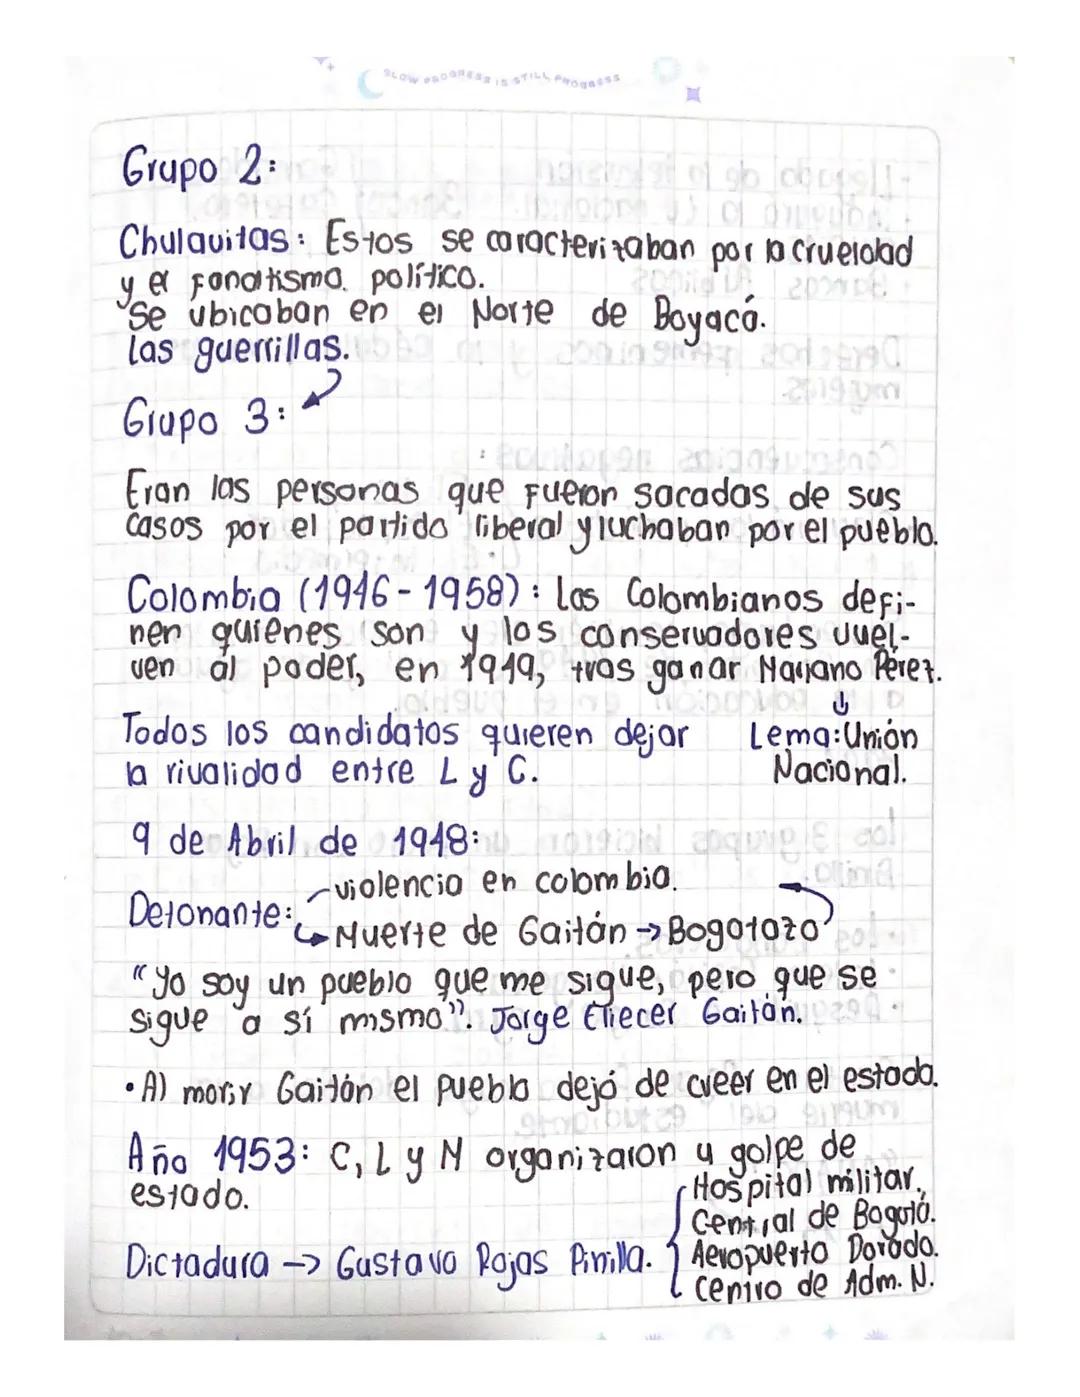 SLOW PROGRESS IS STILL PROGRESS
Grupo 2:
Chulavitas: Estos se caracterizaban por la crueldad
y el fanatismo político.
Se ubicaban en el Norte de Boyacá.
las guerrillas.
Grupo 3:
Eran las personas que fueron sacadas de sus
casas por el partido liberal y luchaban por el pueblo.
Colombia (1946-1958): Los Colombianos defi-
nen quienes son y los conservadores vuel-
ven al poder, en 1949, tras ganar Mariano Pérez.
↓
Todos los candidatos quieren dejar Lema: Unión
la rivalidad entre L y C. Nacional.
9 de Abril de 1948:
violencia en colombia.
Detonante:
Muerte de Gaitán → Bogotazo
"Yo soy un pueblo que me sigue, pero que se
sigue a sí mismo". Jorge Eliecer Gaitán.
• Al morir Gaitán el pueblo dejó de creer en el estado.
Año 1953: C, L y M organizaron u golpe de
estado.
Hospital militar.
Central de Bogotá.
Dictadura → Gustavo Rojas Pinilla. Aeropuerto Dorado.
Centro de Adm. N.